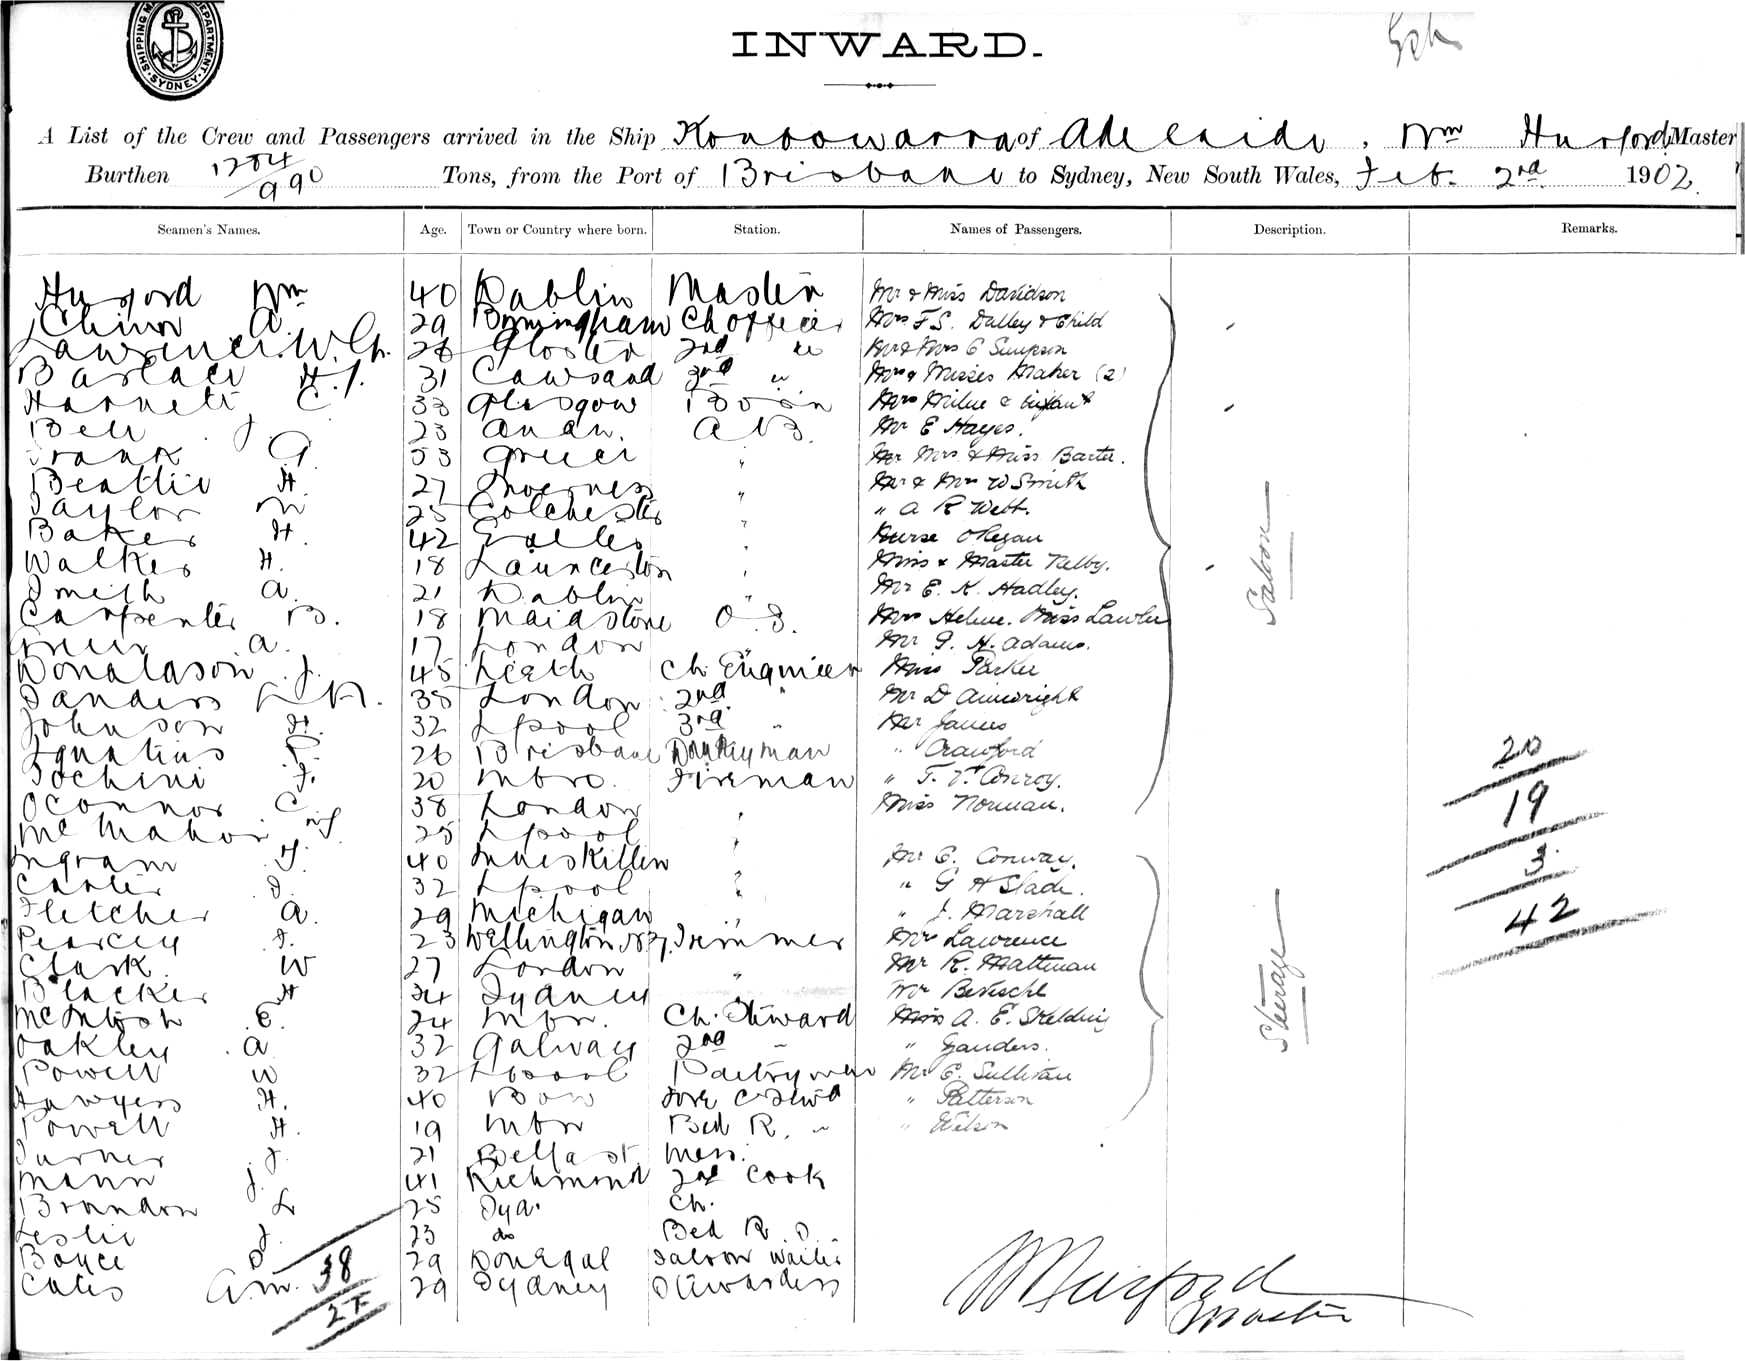 SHIPPING MASTER'S DEPARTMENT SYDNEY
INWARD.
A List of the Crew and Passengers arrived in the Ship Konoowarra of Adelaide, Wm Hurford Master
Burthen 1284/990 Tons, from the Port of Brisbane to Sydney, New South Wales, Feb. 2nd 1902.
Seamen's Names. Age. Town or Country where born. Station. Names of Passengers. Description. Remarks.
Hurford Wm 40 Dublin Master Mr & Miss Davidson
A. 29 Birmingham Ch officer Mrs F S. Dalley & Child
Lawrence. W. 28 Gloster 2nd Mr & Mrs Simpson
H. J. 31 Cawsand 3rd " Mrs & Misses Maher (2)
C 33 Glasgow Bosn Mrs Milne & infant
Bell J 23 AB. Mr E Hayes.
Frank G 53 Greece " Mr Mrs & Miss Barter.
Beattie H. 27 Inverness " Mr & Mrs W Smith
Taylor 25 Colchester " " A R Webb.
Baker H. 42 " Nurse O'Regan
Walker H. 18 Launceston " Miss & Master Kelby.
Smith A. 21 Dublin " Mr E. K. Hadley.
Carpenter B. 18 Maidstone O.S. Mrs Helme. Miss Lawler
A. 17 London " Mr H. Adams.
Donaldson J. 45 Leith Ch. Engineer Miss Parker
Sanders 38 London 2nd " Mr D Ainwright
Johnson H. 32 Lpool 3rd " Mr James
Ignatius 26 Brisbane Donkeyman " Crawford
Tochini J. 20 Mbro. Fireman " Conroy.
OConnor C 38 London " Miss Norman.
McMahon 25 Lpool "
Ingram J. 40 Inniskillin " Mr C. Conway.
Carter J. 32 Lpool " " G H Slade.
Fletcher A. 29 Michigan " " J. Marshall
Pearcey J. 23 Wellington NZ. Trimmer Mrs Lawrence
Clark W 27 London " Mr R. Maltman
Blacker H 24 Sydney " Mr
McIntosh E. 24 Mbn. Ch. Steward Miss A. E.
Oakley A 32 Galway 2nd " " Ganders.
Powell W 32 Lpool Pantryman Mr E. Sullivan
Sawyers H. 40 Bow Fore C Stwd " Patterson
Powell H. 19 Mbn Bed R. " " Wilson
Turner J. 21 Belfast Mess.
Mann J. 41 Richmond 2nd Cook
Brandon L 25 Syd. Ch.
Leslie J. 23 do Bed R. S.
Boyce D 29 Donegal Saloon Waiter
Cates A.M. 29 Sydney Stewardess
38
Saloon
Steerage
20
19
3
42
WHurford
Master